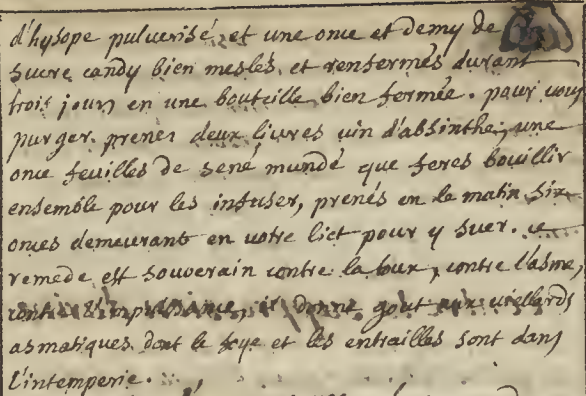 d'hysope puluerisé, et une once et demy de
sucre candy bien meslés, et renfermés durant
trois jours en une bouteille bien fermée. pour vous
purger. prenes deux liures uin d'absinthe, une
once feuilles de sené mundé que feres bouillir
ensemble pour les infuser, prenés en le matin six
onces demeurant en votre lict pour y suer. ce
remede est souuerain contre la toux, contre l'asme,
il donne gout aux uiellards
asmatiques dont le foye et les entrailles sont dans
l'intemperie.